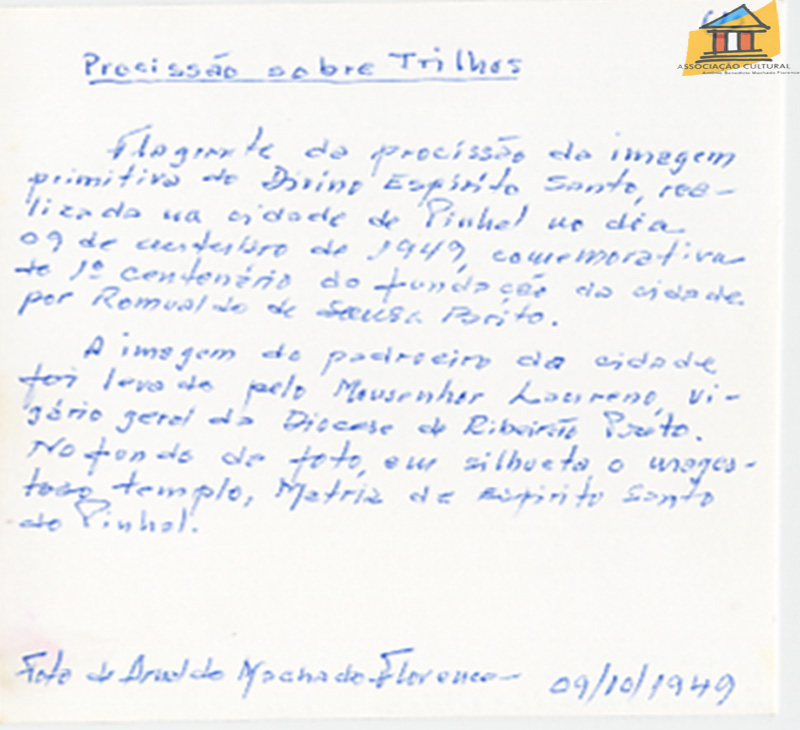 ASSOCIAÇÃO CULTURAL
Antonio Benedicto Machado Florence
Procissão sobre Trilhos
Flagrante da procissão da imagem
primitiva do Divino Espírito Santo, rea-
lizada na cidade de Pinhal no dia
09 de outubro de 1949, comemorativa
do 1º centenário da fundação da cidade
por Romualdo de Sousa Brito.
A imagem do padroeiro da cidade
foi levada pelo Monsenhor Laureno, vi-
gário geral da Diocese de Ribeirão Preto.
No fundo da foto, em silhueta o majes-
toso templo, Matriz de Espírito Santo
do Pinhal.
Foto de Arnaldo Machado Florence 09/10/1949